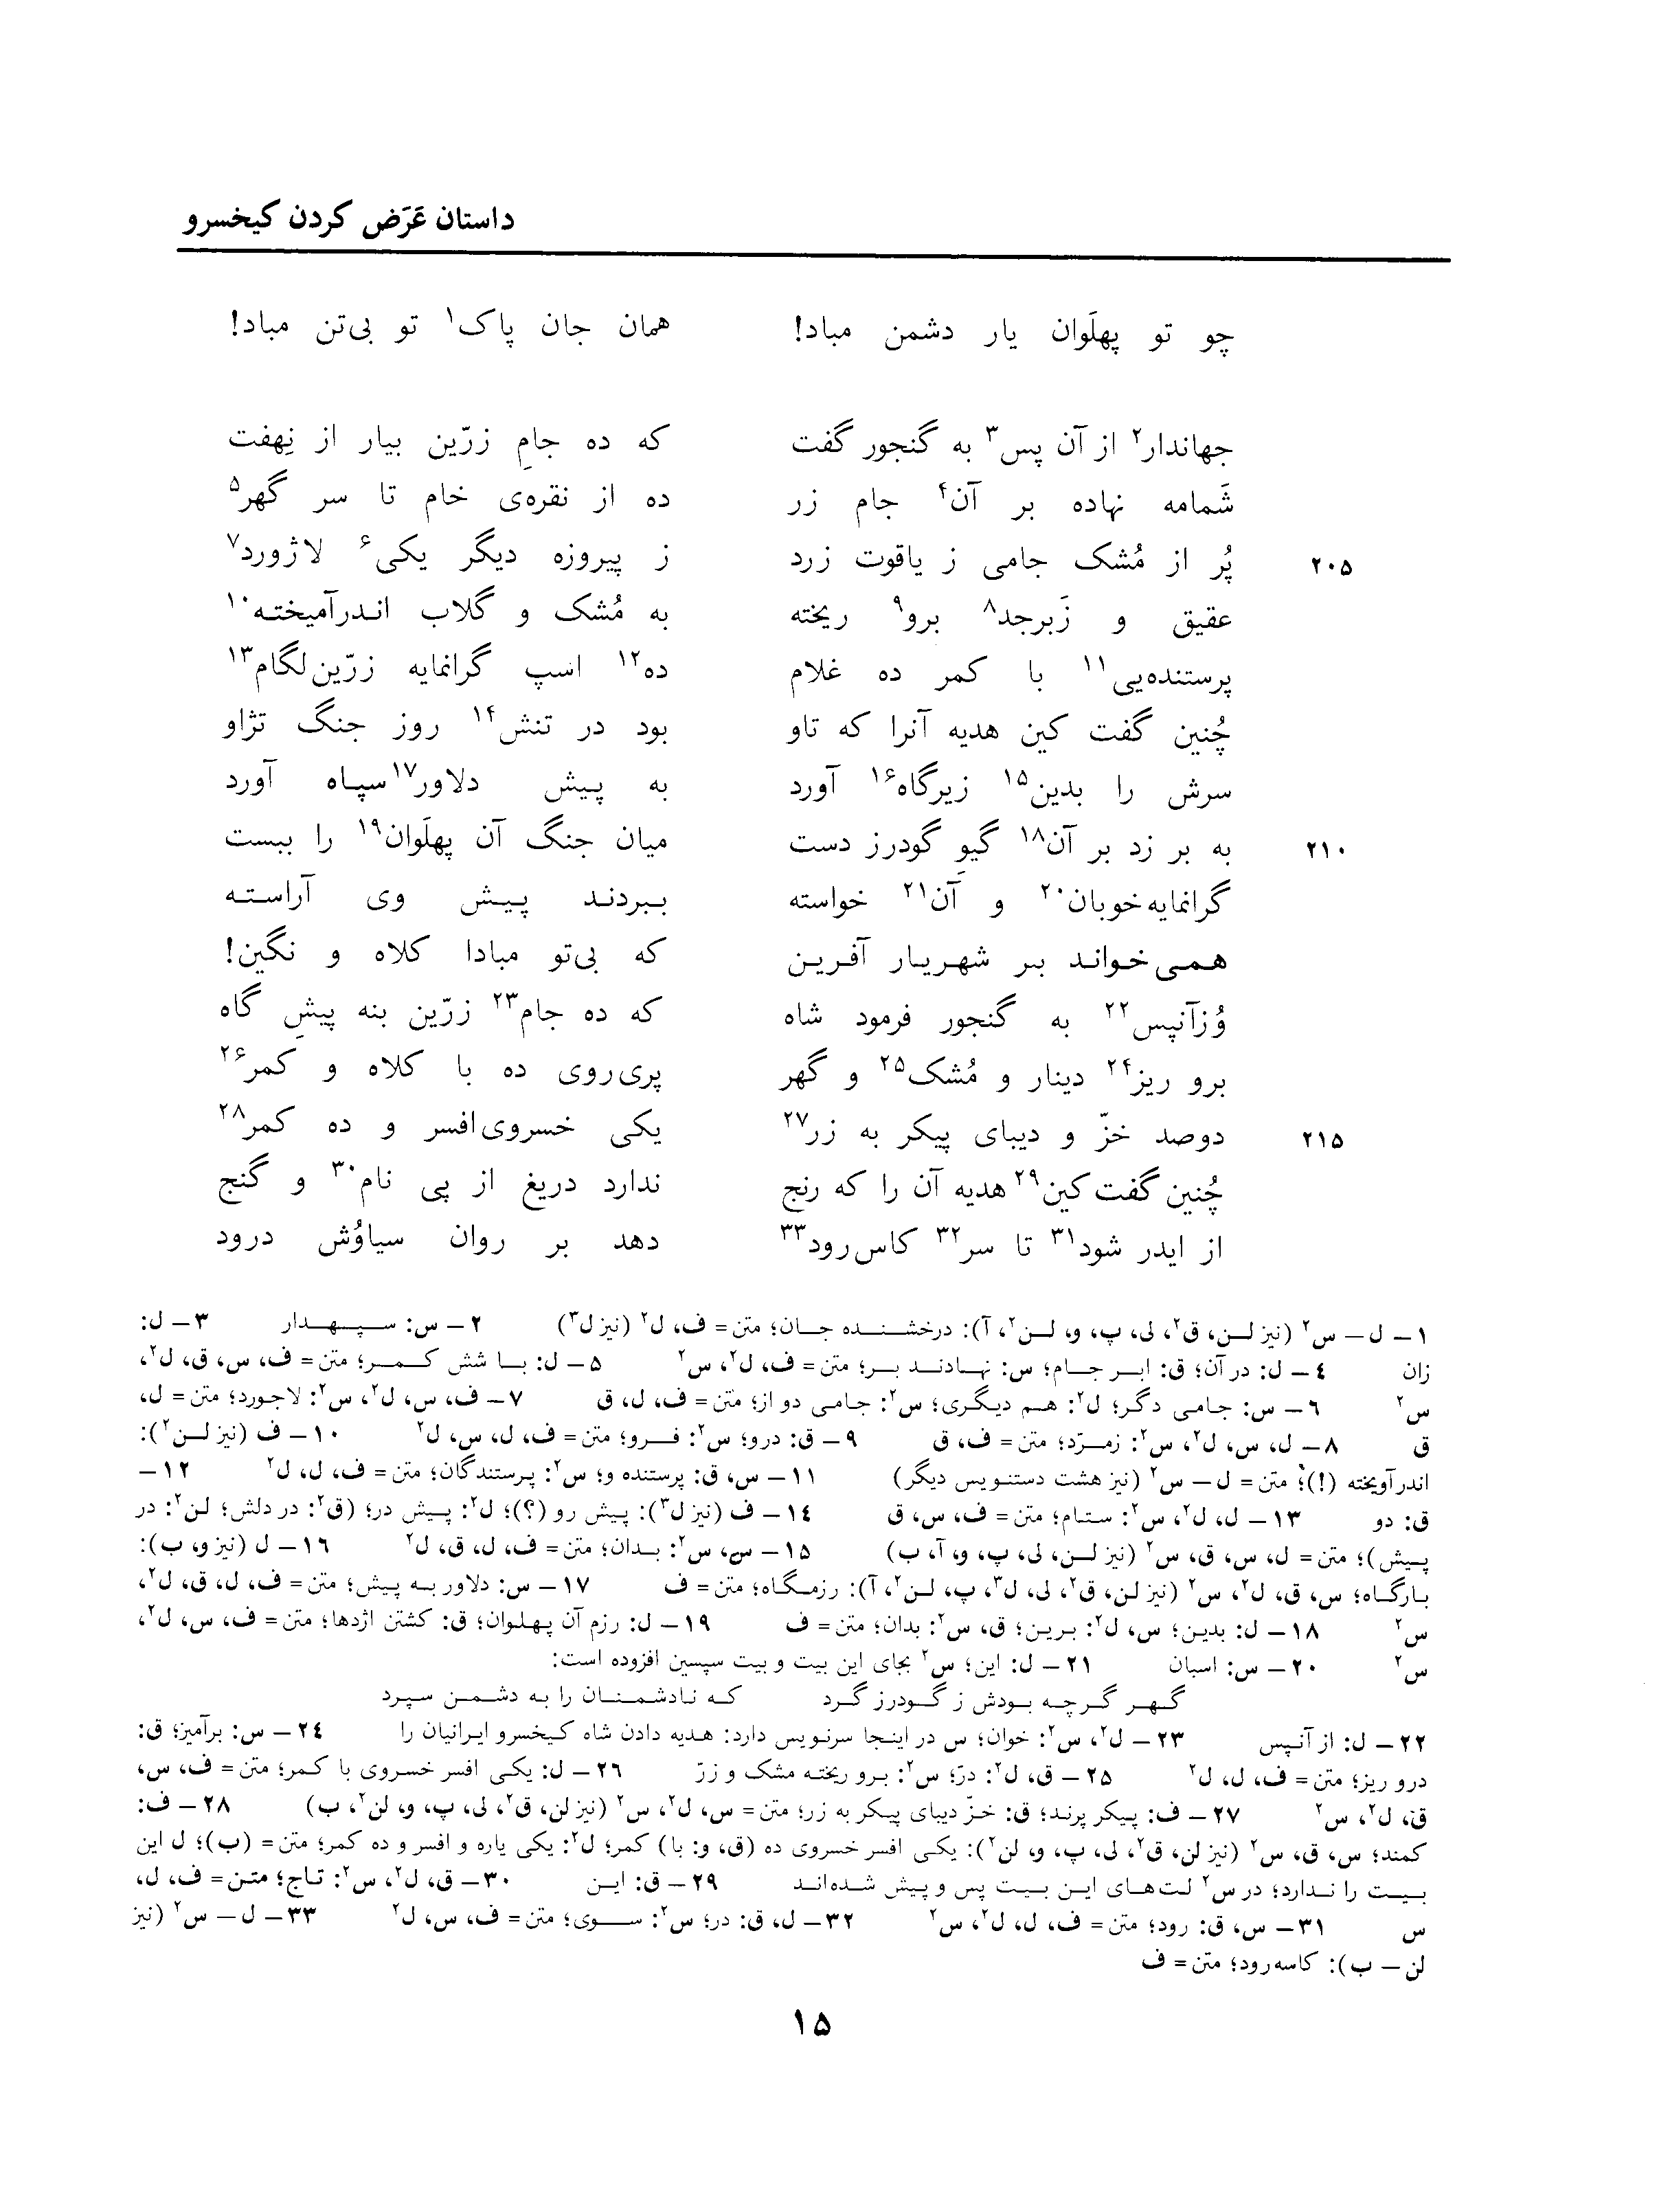 داستان عَرَض کردن کیخسرو
چو تو پهلَوان یار دشمن مباد! همان جان پاک۱ تو بی‌تن مباد!
جهاندار۲ از آن پس۳ به گنجور گفت که ده جامِ زرّین بیار از نِهفت
شَمامه نهاده بر آن۴ جام زر ده از نقره‌ی خام تا سر گهر۵
۲۰۵ پُر از مُشک جامی ز یاقوت زرد ز پیروزه دیگر یکی۶ لاژورد۷
عقیق و زَبرجد۸ برو۹ ریخته به مُشک و گلاب اندرآمیخته۱۰
پرستنده‌یی۱۱ با کمر ده غلام ده۱۲ اسپ گرانمایه زرّین‌لگام۱۳
چُنین گفت کین هدیه آنرا که تاو بود در تنش۱۴ روز جنگ تژاو
سرش را بدین۱۵ زیرگاه۱۶ آورد به پیش دلاور۱۷ سپاه آورد
۲۱۰ به بر زد بر آن۱۸ گیوِ گودرز دست میان جنگ آن پهلَوان۱۹ را ببست
گرانمایه‌خوبان۲۰ و آن۲۱ خواسته ببردند پیش وی آراسته
همی‌خواند بر شهریار آفرین که بی‌تو مبادا کلاه و نگین!
وُزآنپس۲۲ به گنجور فرمود شاه که ده جام۲۳ زرّین بنه پیشِ گاه
برو ریز۲۴ دینار و مُشک۲۵ و گهر پری‌روی ده با کلاه و کمر۲۶
۲۱۵ دوصد خزّ و دیبای پیکر به زر۲۷ یکی خسروی‌افسر و ده کمر۲۸
چُنین گفت کین۲۹ هدیه آن را که رنج ندارد دریغ از پی نام۳۰ و گنج
از ایدر شود۳۱ تا سر۳۲ کاس‌رود۳۳ دهد بر روان سیاوُش درود
۱ – ل – س۲ (نیز لن، ق۲، لی، پ، و، لن۲، آ): درخشنده جان؛ متن = ف، ل۲ (نیز ل۳) ۲ – س: سپهدار ۳ – ل:
زان ۴ – ل: در آن؛ ق: ابر جام؛ س: نهادند بر؛ متن = ف، ل۲، س۲ ۵ – ل: با شش کمر؛ متن = ف، س، ق، ل۲،
س۲ ۶ – س: جامی دگر؛ ل۲: هم دیگری؛ س۲: جامی دو از؛ متن = ف، ل، ق ۷ – ف، س، ل۲، س۲: لاجورد؛ متن = ل،
ق ۸ – ل، س، ل۲، س۲: زمرّد؛ متن = ف، ق ۹ – ق: درو؛ س۲: فرو؛ متن = ف، ل، س، ل۲ ۱۰ – ف (نیز لن۲):
اندرآویخته (!)؛ متن = ل – س۲ (نیز هشت دستنویس دیگر) ۱۱ – س، ق: پرستنده و؛ س۲: پرستندگان؛ متن = ف، ل، ل۲ ۱۲ –
ق: دو ۱۳ – ل، ل۲، س۲: ستام؛ متن = ف، س، ق ۱۴ – ف (نیز ل۳): پیش رو (؟)؛ ل۲: پیش در؛ (ق۲: در دلش؛ لن۲: در
پیش)؛ متن = ل، س، ق، س۲ (نیز لن، لی، پ، و، آ، ب) ۱۵ – س، س۲: بدان؛ متن = ف، ل، ق، ل۲ ۱۶ – ل (نیز و، ب):
بارگاه؛ س، ق، ل۲، س۲ (نیز لن، ق۲، لی، ل۳، پ، لن۲، آ): رزمگاه؛ متن = ف ۱۷ – س: دلاور به پیش؛ متن = ف، ل، ق، ل۲،
س۲ ۱۸ – ل: بدین؛ س، ل۲: برین؛ ق، س۲: بدان؛ متن = ف ۱۹ – ل: رزم آن پهلوان؛ ق: کشتن اژدها؛ متن = ف، س، ل۲،
س۲ ۲۰ – س: اسبان ۲۱ – ل: این؛ س۲ بجای این بیت و بیت سپسین افزوده است:
گهر گرچه بودش ز گودرز گرد که نادشمنان را به دشمن سپرد
۲۲ – ل: از آنپس ۲۳ – ل۲، س۲: خوان؛ س در اینجا سرنویس دارد: هدیه دادن شاه کیخسرو ایرانیان را ۲۴ – س: برآمیز؛ ق:
درو ریز؛ متن = ف، ل، ل۲ ۲۵ – ق، ل۲: درّ؛ س۲: برو ریخته مشک و زرّ ۲۶ – ل: یکی افسر خسروی با کمر؛ متن = ف، س،
ق، ل۲، س۲ ۲۷ – ف: پیکر پرند؛ ق: خزّ دیبای پیکر به زر؛ متن = س، ل۲، س۲ (نیز لن، ق۲، لی، پ، و، لن۲، ب) ۲۸ – ف:
کمند؛ س، ق، س۲ (نیز لن، ق۲، لی، پ، و، لن۲): یکی افسر خسروی ده (ق، و: با) کمر؛ ل۲: یکی یاره و افسر و ده کمر؛ متن = (ب)؛ ل این
بیت را ندارد؛ در س۲ لت‌های این بیت پس و پیش شده‌اند ۲۹ – ق: این ۳۰ – ق، ل۲، س۲: تاج؛ متن = ف، ل،
س ۳۱ – س، ق: رود؛ متن = ف، ل، ل۲، س۲ ۳۲ – ل، ق: در؛ س۲: سوی؛ متن = ف، س، ل۲ ۳۳ – ل – س۲ (نیز
لن – ب): کاسه‌رود؛ متن = ف
۱۵